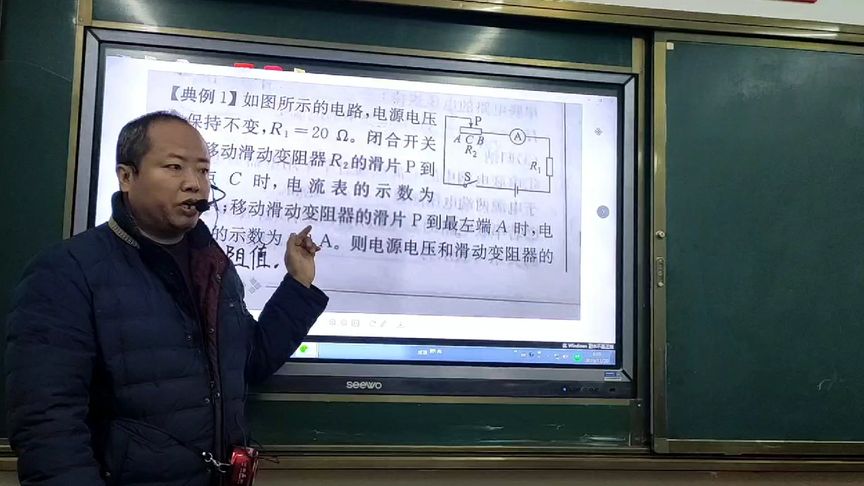 【典例1】如图所示的电路，电源电压
保持不变，R₁＝20 Ω。闭合开关
移动滑动变阻器R₂的滑片P到
C 时，电流表的示数为
；移动滑动变阻器的滑片P到最左端A时，电
的示数为 A。则电源电压和滑动变阻器的
阻值.
P
A
A C B
R₂
R₁
S
Windows
seewo